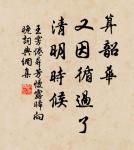 算韶華
又因循過了
清明時候
王雱倦尋芳慢露晞向
晚詞典網集